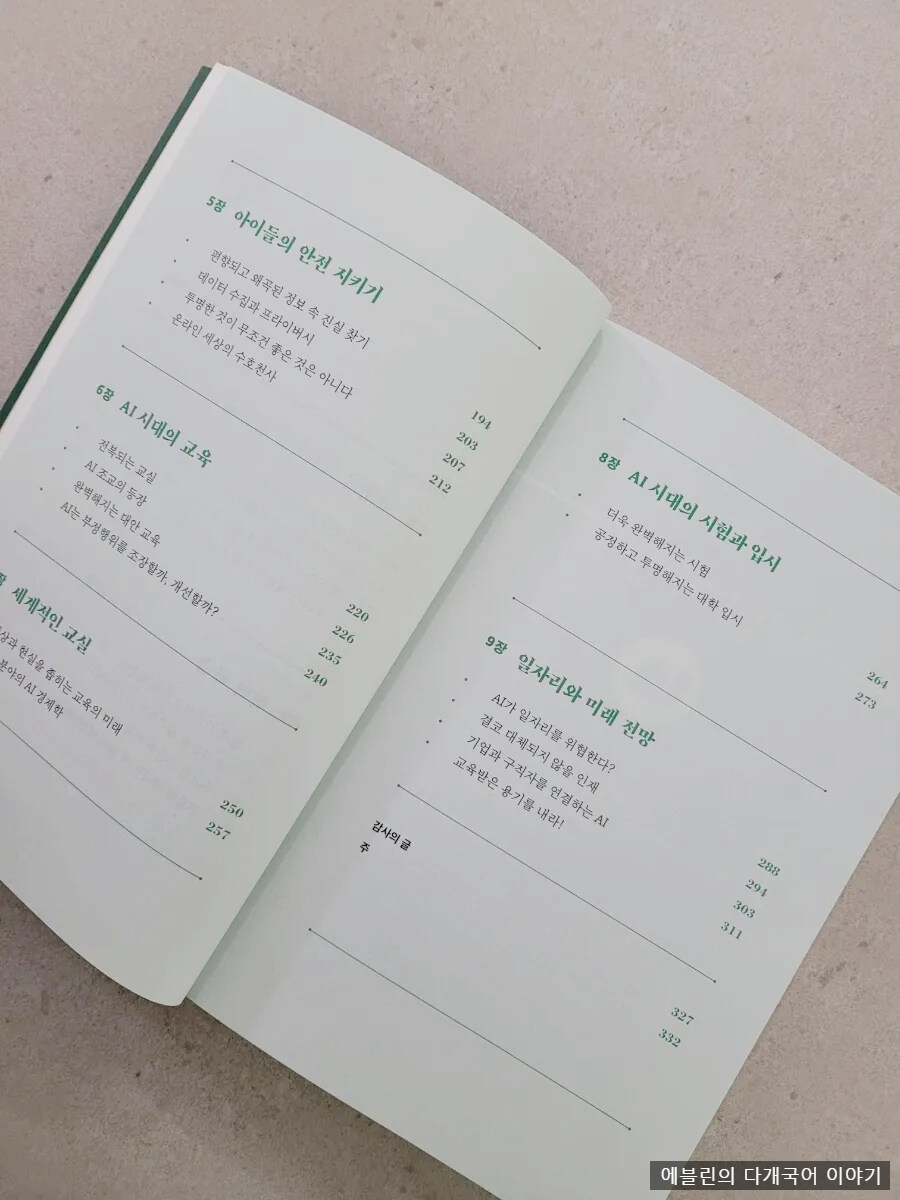 5장 아이들의 안전 지키기
편향되고 왜곡된 정보 속 진실 찾기 194
데이터 수집과 프라이버시 203
투명한 것이 무조건 좋은 것은 아니다 207
온라인 세상의 수호천사 212
6장 AI 시대의 교육
전복되는 교실 220
AI 조교의 등장 226
완벽해지는 대안 교육 235
AI는 부정행위를 조장할까, 개선할까? 240
장 세계적인 교실
현실을 좁히는 교육의 미래 250
분야의 AI 경제학 257
8장 AI 시대의 시험과 입시
더욱 완벽해지는 시험 264
공정하고 투명해지는 대학 입시 273
9장 일자리와 미래 전망
AI가 일자리를 위협한다? 288
결코 대체되지 않을 인재 294
기업과 구직자를 연결하는 AI 303
교육받은 용기를 내라! 311
감사의 글 327
주 332
에블린의 다개국어 이야기